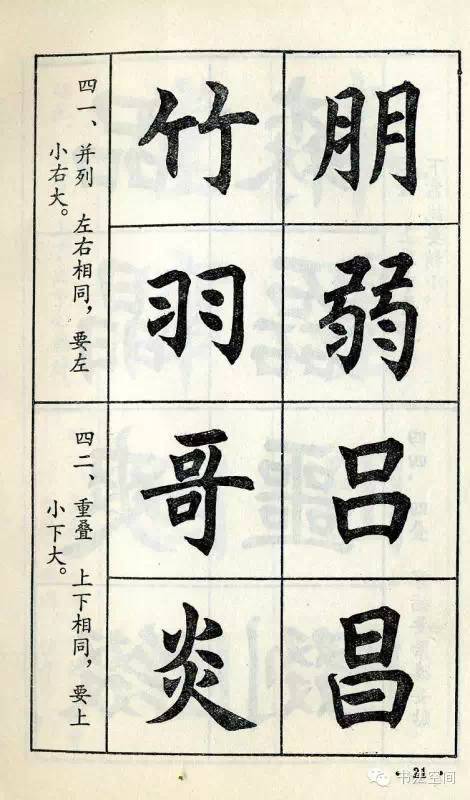 四一、并列 左右相同，要左
小右大。
竹 朋
羽 弱
四二、重叠 上下相同，要上
小下大。
哥 吕
炎 昌
·21·
书法空间